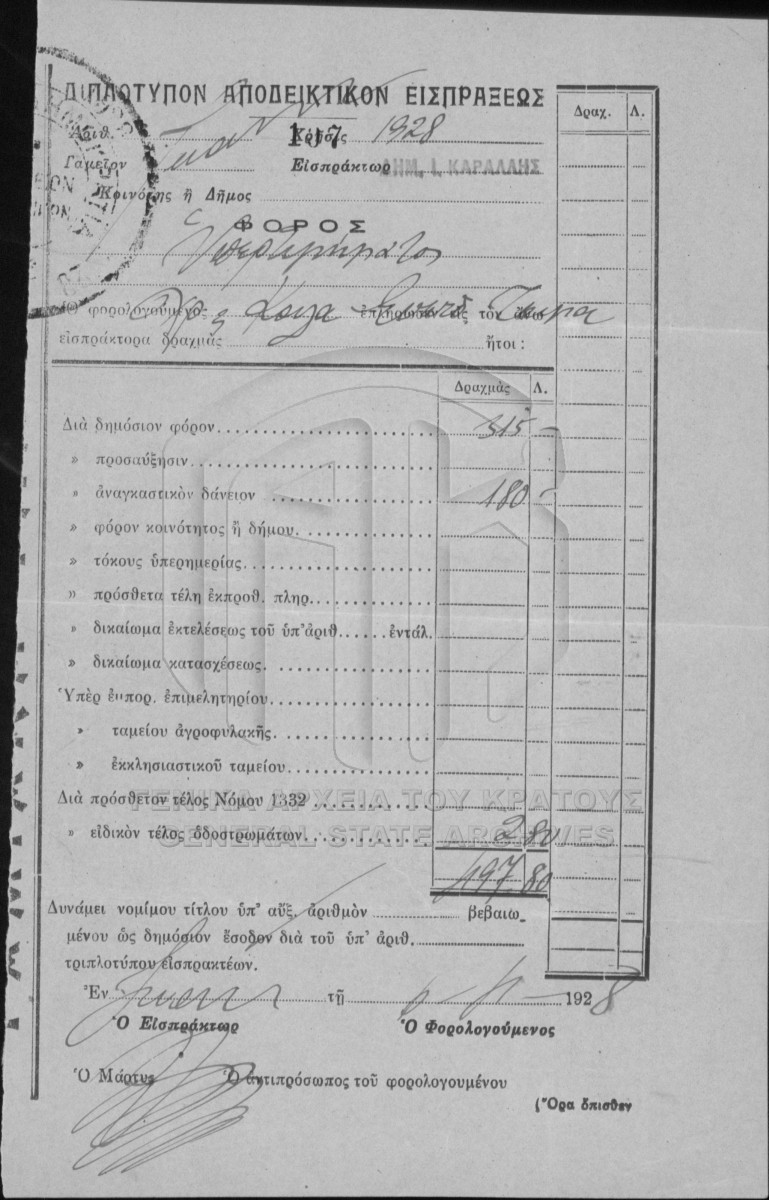 ΔΙΠΛΟΤΥΠΟΝ ΑΠΟΔΕΙΚΤΙΚΟΝ ΕΙΣΠΡΑΞΕΩΣ
Δραχ. Λ.
Ἀριθ. 117 Χρῆσις 1928
Ταμεῖον Εἰσπράκτωρ ΔΗΜ. Ι. ΚΑΡΑΛΛΗΣ
Κοινότης ἢ Δῆμος
ΦΟΡΟΣ
Ὁ φορολογούμενος ἐπλήρωσεν εἰς τὸν ἄνω
εἰσπράκτορα δραχμὰς ἤτοι :
Δραχμὰς Λ.
Διὰ δημόσιον φόρον 315 –
» προσαύξησιν
» ἀναγκαστικὸν δάνειον 180 –
» φόρον κοινότητος ἢ δήμου
» τόκους ὑπερημερίας
» πρόσθετα τέλη ἐκπροθ. πληρ.
» δικαίωμα ἐκτελέσεως τοῦ ὑπ' ἀριθ...... ἐντάλ.
» δικαίωμα κατασχέσεως.
Ὑπὲρ ἐμπορ. ἐπιμελητηρίου
» ταμείου ἀγροφυλακῆς
» ἐκκλησιαστικοῦ ταμείου
Διὰ πρόσθετον τέλος Νόμου 1332
ΓΕΝΙΚΑ ΑΡΧΕΙΑ ΤΟΥ ΚΡΑΤΟΥΣ
» εἰδικὸν τέλος ὁδοστρωμάτων 2 80
GENERAL STATE ARCHIVES
497 80
Δυνάμει νομίμου τίτλου ὑπ' αὔξ. ἀριθμὸν βεβαιω-
μένου ὡς δημόσιον ἔσοδον διὰ τοῦ ὑπ' ἀριθ.
τριπλοτύπου εἰσπρακτέων.
Ἐν τῇ 1928
Ὁ Εἰσπράκτωρ Ὁ Φορολογούμενος
Ὁ Μάρτυς Ὁ ἀντιπρόσωπος τοῦ φορολογουμένου
(Ὅρα ὄπισθεν